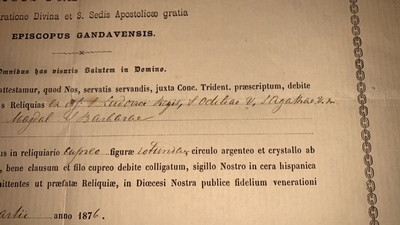 ratione Divina et S. Sedis Apostolicæ gratia
EPISCOPUS GANDAVENSIS.
Omnibus has visuris Salutem in Domino.
attestamur, quod Nos, servatis servandis, juxta Conc. Trident. præscriptum, debite
s Reliquias ex Ludovici Regis, S Odiliae V, S Agathae V. m.
Magdal S Barbarae
us in reliquiario cupreo figuræ rotundae, circulo argenteo et crystallo ab
, bene clausum et filo cupreo debite colligatum, sigillo Nostro in cera hispanica
mittentes ut præfatæ Reliquiæ, in Diœcesi Nostra publicæ fidelium venerationi
anno 1876.